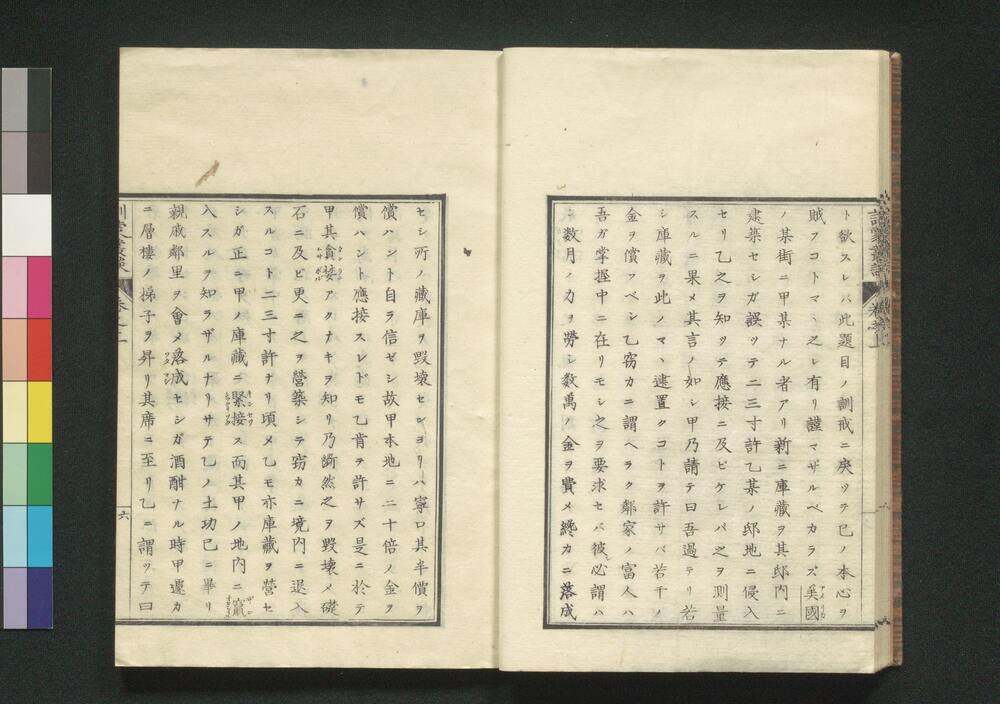 ト欲スレバ此題目ノ訓戒ニ戻ツテ已ノ本心ヲ
賊フコトマヽ之レ有リ謹マザルベカラズ英國
ノ某街ニ甲某ナル者アリ新ニ庫藏ヲ其邸内ニ
建築セシガ誤ツテ二三寸許乙某ノ邸地ニ侵入
セリ乙之ヲ知ツテ應接ニ及ビケレバ之ヲ測量
スルニ果メ其言ノ如シ甲乃請テ曰吾過テリ若
シ庫藏ヲ此ノマヽ建置クコトヲ許サバ若干ノ
金ヲ償フベシ乙窃カニ謂ヘラク鄰家ノ富人ハ
吾ガ掌握中ニ在リモシ之ヲ要求セバ彼必謂ハ
ン数月ノ力ヲ勞シ数萬ノ金ヲ費メ纔カニ落成
セシ所ノ藏庫ヲ毀壊センヨリハ寧ロ其半價ヲ
償ハント自ラ信ゼシ故甲本地ニ二十倍ノ金ヲ
償ハント應接スレドモ乙肯テ許サズ是ニ於テ
甲其貪婪アクナキヲ知リ乃断然之ヲ毀壊メ礎
石ニ及ビ更ニ之ヲ營築シテ窃カニ境内ニ退入
スルコト二三寸許ナリ頃メ乙モ亦庫藏ヲ營セ
シガ正ニ甲ノ庫藏ニ緊接ス而其甲ノ地内ニ竄
入スルヲ知ラザルナリサテ乙ノ土功已ニ畢リ
親戚鄰里ヲ會メ落成セシガ酒酣ナル時甲遽カ
ニ層樓ノ梯子ヲ昇リ其席ニ至リ乙ニ謂ツテ曰
六